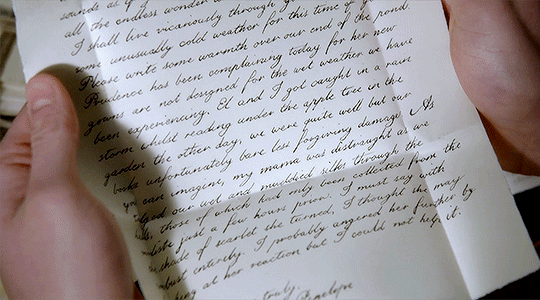 sounds as if
all the endless wonder
I shall live vicariously through
some unusually cold weather for this time of
Please write some warmth over our end of the pond.
Prudence has been complaining today for her new
gowns are not designed for the wet weather we have
been experiencing. El and I got caught in a rain
storm whilst reading under the apple tree in the
garden the other day, we were quite well but our
books unfortunately bare less forgiving damage. As
you can imagine, my mama was distraught as we
our wet and muddied silks through the
those of which had only been collected from the
modiste just a few hours prior. I must say with
shade of scarlet she turned, I thought she may
combust entirely. I probably angered her further by
at her reaction but I could not help it.
truly,
Penelope